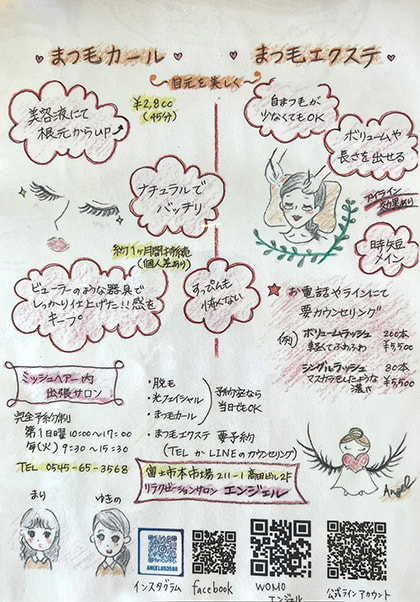 まつ毛カール
まつ毛エクステ
〜目元を楽しく〜
美容液にて
根元からUP
¥2,800
(45分)
自まつ毛が
少なくてもOK
ボリュームや
長さを出せる
アイライン
効果あり
ナチュラルで
バッチリ
時短
メイン
約1ヶ月間持続
(個人差あり)
ビューラーのような器具で
しっかり仕上げた!!感を
キープ
すっぴんも
怖くない
★お電話やラインにて
要カウンセリング
(例)
ボリュームラッシュ 200本
軽くてふわふわ ¥5,500
シングルラッシュ 80本
マスカラをしたような ¥5,500
濃さ
ミッシュヘアー内
出張サロン
完全予約制
第1日曜 10:00〜17:00
毎(火) 9:30〜15:30
TEL 0545-65-3568
・脱毛
・光フェイシャル
・まつ毛カール
予約空なら
当日もOK
・まつ毛エクステ 要予約
(TELかLINEのカウンセリング)
富士市本市場211-1 高田ビル2F
リラクゼーションサロン エンジェル
Angel
まり
ゆきの
ANGEL653568
インスタグラム
facebook
WOMO
エンジェル
公式ラインアカウント